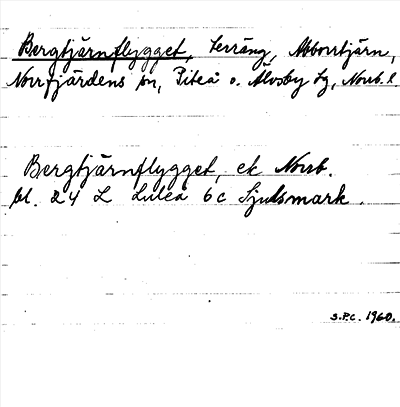 Bergtjärnflygget, Terräng, Abborrtjärn,
Norrfjärdens sn, Piteå o. Älvsby tg, Norrb. l.
Bergtjärnflygget, ek Norrb.
bl. 24 L Luleå 6 c Sjulsmark.
S.P.C. 1960.